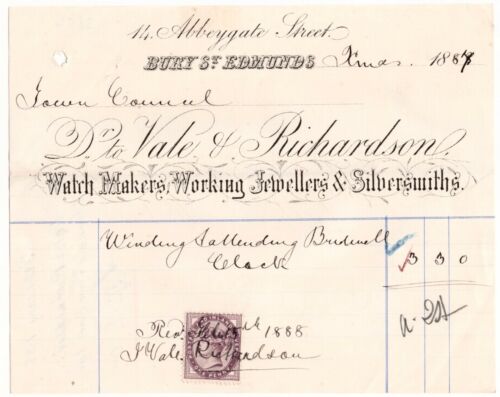 14, Abbeygate Street.
BURY ST. EDMUNDS Xmas. 1887
Town Council
Dr. to Vale & Richardson,
Watch Makers, Working Jewellers & Silversmiths.
Winding & attending Bridewell
Clock 3 3 0
1888
Vale Richardson